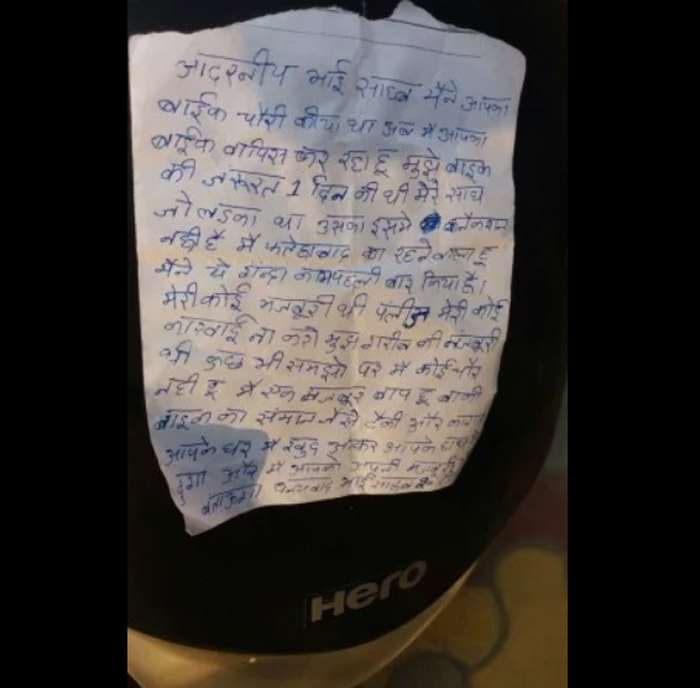 आदरनीय भाई साहब मैने आपका
बाईक चोरी कीया था अब मै आपका
बाईक वापिस कर रहा हू मुझे बाइक
की जरूरत 1 दिन की थी मेरे साथ
जो लडका था उसका इसमे कनैकशन
नही है मै फतेहाबाद का रहने वाला हू
मैने ये गन्दा काम पहली बार किया है।
मेरी कोई मजबूरी थी पलीज मेरी कोई
कारवाई ना करो मुझ गरीब की मजबूरी
थी कुछ भी समझो पर मै कोई चोर
नही हू मै एक मजबूर बाप हू बाकी
बाइक का समान जैसे टैंकी और
आपके घर मै खुद आकर आपके
दुगा और मै आपको अपनी मजबूरी
बताऊगा धन्यवाद भाई साहब
Hero